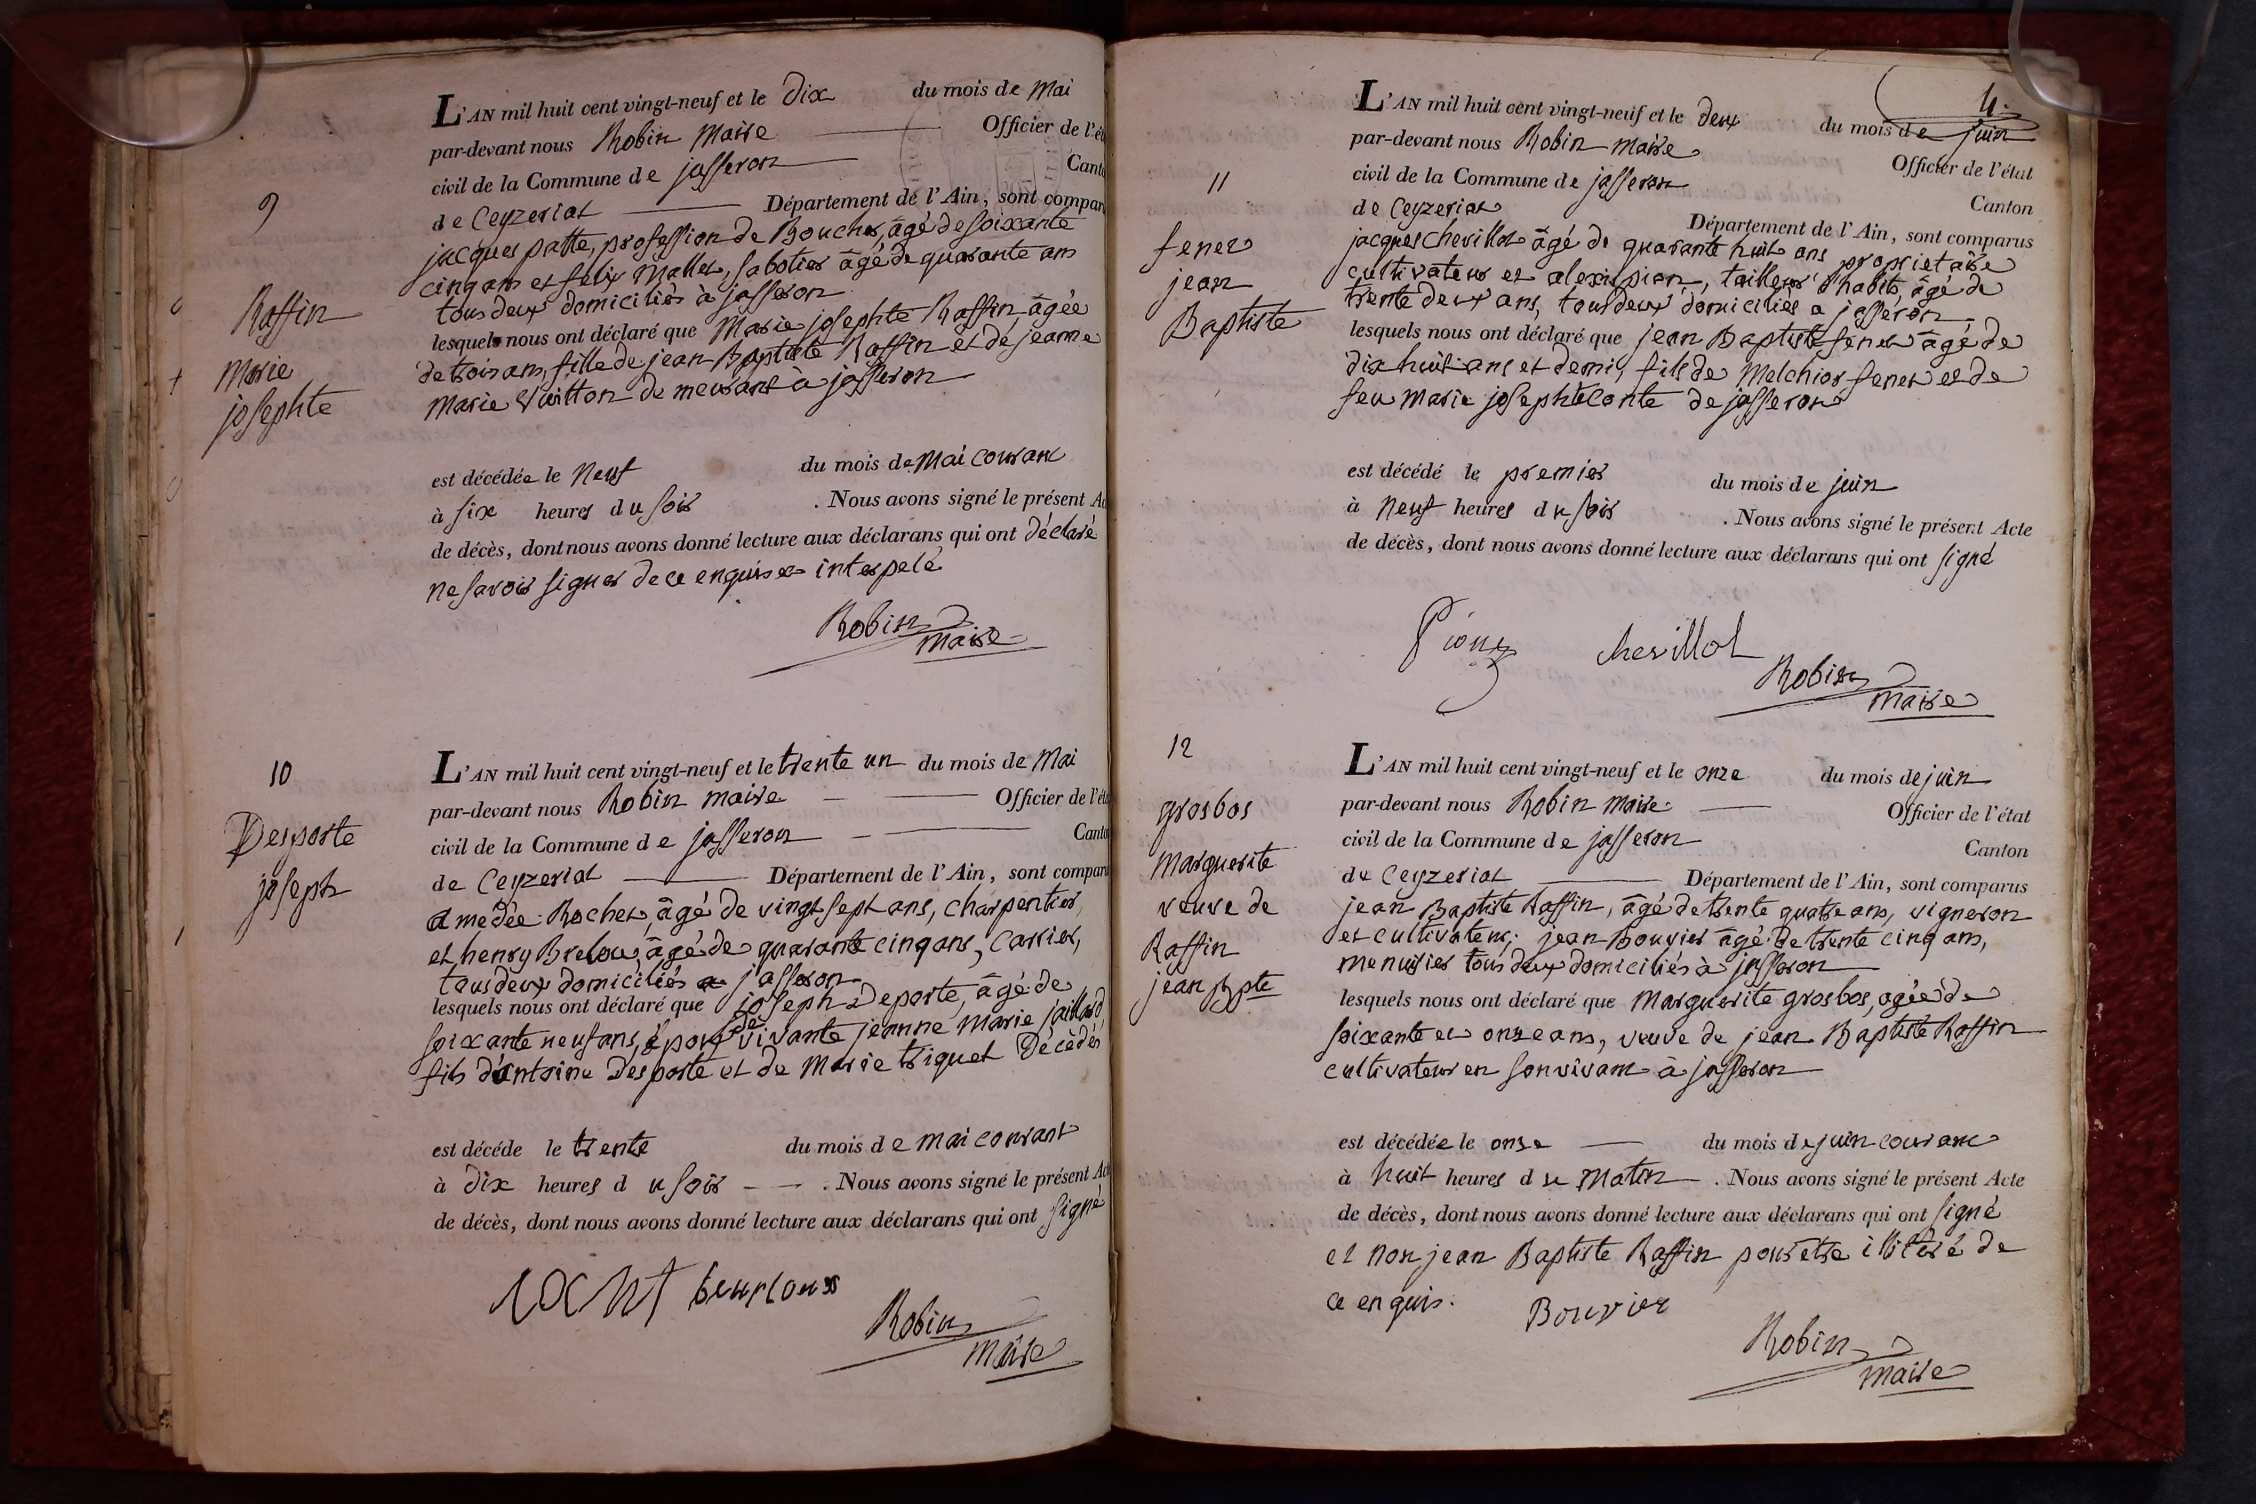 9
Raffin
Marie
josephte
L'AN mil huit cent vingt-neuf et le dix du mois de Mai
par-devant nous Robin Maire Officier de l'ét
civil de la Commune de jasseron Canto
de Ceyzeriat Département de l'Ain, sont compar
jacques patte, profession de Boucher, âgé de soixante
cinq ans et felix Mallet, sabotier âgé de quarante ans
tous deux domiciliés à jasseron
lesquels nous ont déclaré que Marie josephte Raffin âgée
de trois ans, fille de jean Baptiste Raffin et de jeanne
Marie Vuitton demeurant à jasseron
est décédée le Neuf du mois de Mai courant
à six heures du soir . Nous avons signé le présent Ac
de décès, dont nous avons donné lecture aux déclarans qui ont déclaré
ne savoir signer de ce enquis et interpelé
Robin
Maire
10
Desporte
joseph
L'AN mil huit cent vingt-neuf et le trente un du mois de Mai
par-devant nous Robin maire Officier de l'éta
civil de la Commune de jasseron Canto
de Ceyzeriat Département de l'Ain, sont comparu
amedée Rochet, âgé de vingt sept ans, charpentier,
et henry âgé de quarante cinq ans, carrier,
tous deux domiciliés a jasseron
lesquels nous ont déclaré que joseph Deporte, âgé de
soixante neuf ans, époux de vivante jeanne Marie jaillard,
fils d'antoine Desporte et de Marie triquet Décédés
est décéde le trente du mois de mai courant
à dix heures du soir . Nous avons signé le présent Act
de décès, dont nous avons donné lecture aux déclarans qui ont signé
Robin
Maire
4.
11
fenet
jean
Baptiste
L'AN mil huit cent vingt-neuf et le deux du mois de juin
par-devant nous Robin maire Officier de l'état
civil de la Commune de jasseron Canton
de Ceyzeriat Département de l'Ain, sont comparus
jacques chevillot âgé de quarante huit ans proprietaire
cultivateur et alexis pion, tailleur d'habits âgé de
trente deux ans, tous deux domiciliés a jasseron
lesquels nous ont déclaré que jean Baptiste fenet âgé de
dix huit ans et demi, fils de Melchior fenet et de
feu Marie josephte Conte de jasseron
est décédé le premier du mois de juin
à Neuf heures du soir . Nous avons signé le présent Acte
de décès, dont nous avons donné lecture aux déclarans qui ont signé
Pion chevillot
Robin
Maire
12
grosbos
Marguerite
veuve de
Raffin
jean Bpte
L'AN mil huit cent vingt-neuf et le onze du mois de juin
par-devant nous Robin Maire Officier de l'état
civil de la Commune de jasseron Canton
de Ceyzeriat Département de l'Ain, sont comparus
jean Baptiste Raffin, âgé de trente quatre ans, vigneron
et cultivateur, jean Bouvier âgé de trente cinq ans,
menuisier tous deux domiciliés à jasseron
lesquels nous ont déclaré que Marguerite grosbos, agée de
soixante et onze ans, veuve de jean Baptiste Raffin
cultivateur en son vivant à jasseron
est décédée le onze du mois de juin courant
à huit heures du Matin . Nous avons signé le présent Acte
de décès, dont nous avons donné lecture aux déclarans qui ont signé
et non jean Baptiste Raffin pour etre illiteré de
ce enquis. Bouvier
Robin
Maire